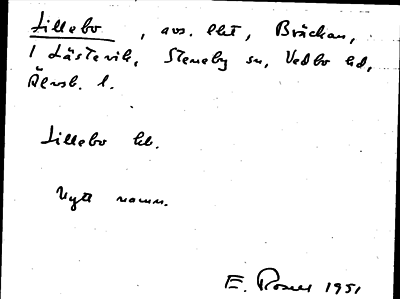 Lillebo, avs. lht, Bräckan,
1 Lästevik, Steneby sn, Vedbo hd,
Älvsb. l.
Lillebo hb.
Nytt namn.
E. Rosell 1951